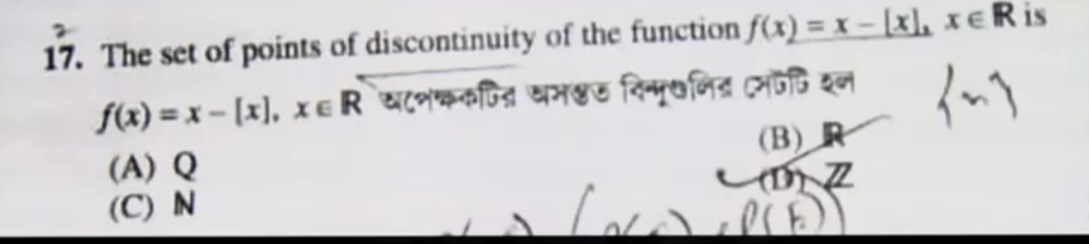 17. The set of points of discontinuity of the function f(x) = x – [x], x ∈ ℝ is
f(x) = x – [x], x ∈ ℝ অপেক্ষকটির অসন্তত বিন্দুগুলির সেটটি হল {n}
(A) Q (B) ℝ
(C) N (D) ℤ